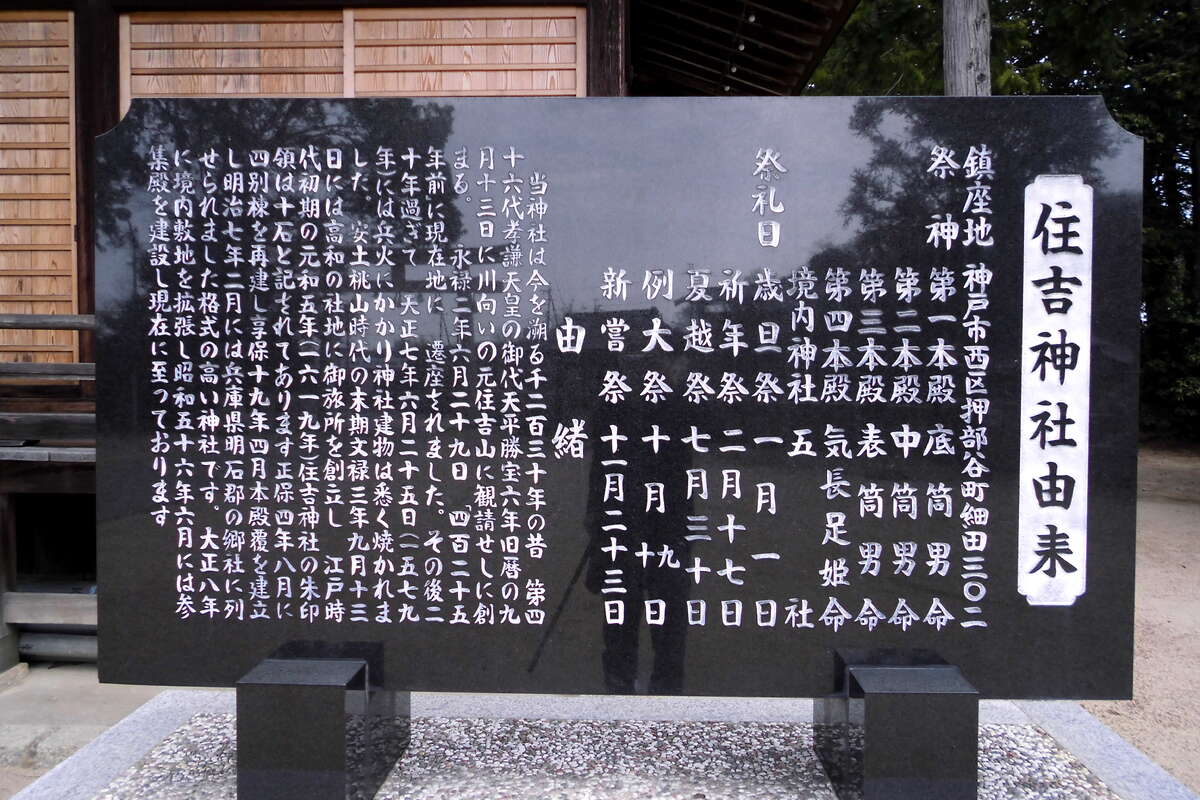 住吉神社由来
鎮座地 神戸市西区押部谷町細田三〇二
祭神 第一本殿 底筒男命
第二本殿 中筒男命
第三本殿 表筒男命
第四本殿 気長足姫命
境内神社 五社
祭礼日 歳旦祭 一月一日
祈年祭 二月十七日
夏越祭 七月三十日
例大祭 十月九十日
新嘗祭 十一月二十三日
由緒
当神社は今を溯る千二百三十年の昔 第四
十六代孝謙天皇の御代天平勝宝六年旧暦の九
月十三日に川向いの元住吉山に観請せしに創
まる。 永禄二年六月二十九日「四百二十五
年前」に現在地に 遷座されました。その後二
十年過ぎて 天正七年六月二十五日(一五七九
年)には兵火にかかり神社建物は悉く焼かれま
した。 安土桃山時代の末期文禄三年九月十三
日には高和の社地に御旅所を創立し 江戸時
代初期の元和五年(一六一九年)住吉神社の朱印
領は十石と記されてあります正保四年八月に
四別棟を再建し享保十九年四月本殿覆を建立
し明治七年二月には兵庫県明石郡の郷社に列
せられました格式の高い神社です。大正八年
に境内敷地を拡張し昭和五十六年六月には参
集殿を建設し現在に至っております